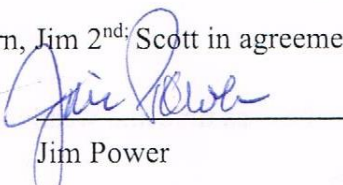 n, Jim 2nd; Scott in agreeme
Jim Power
Jim Power